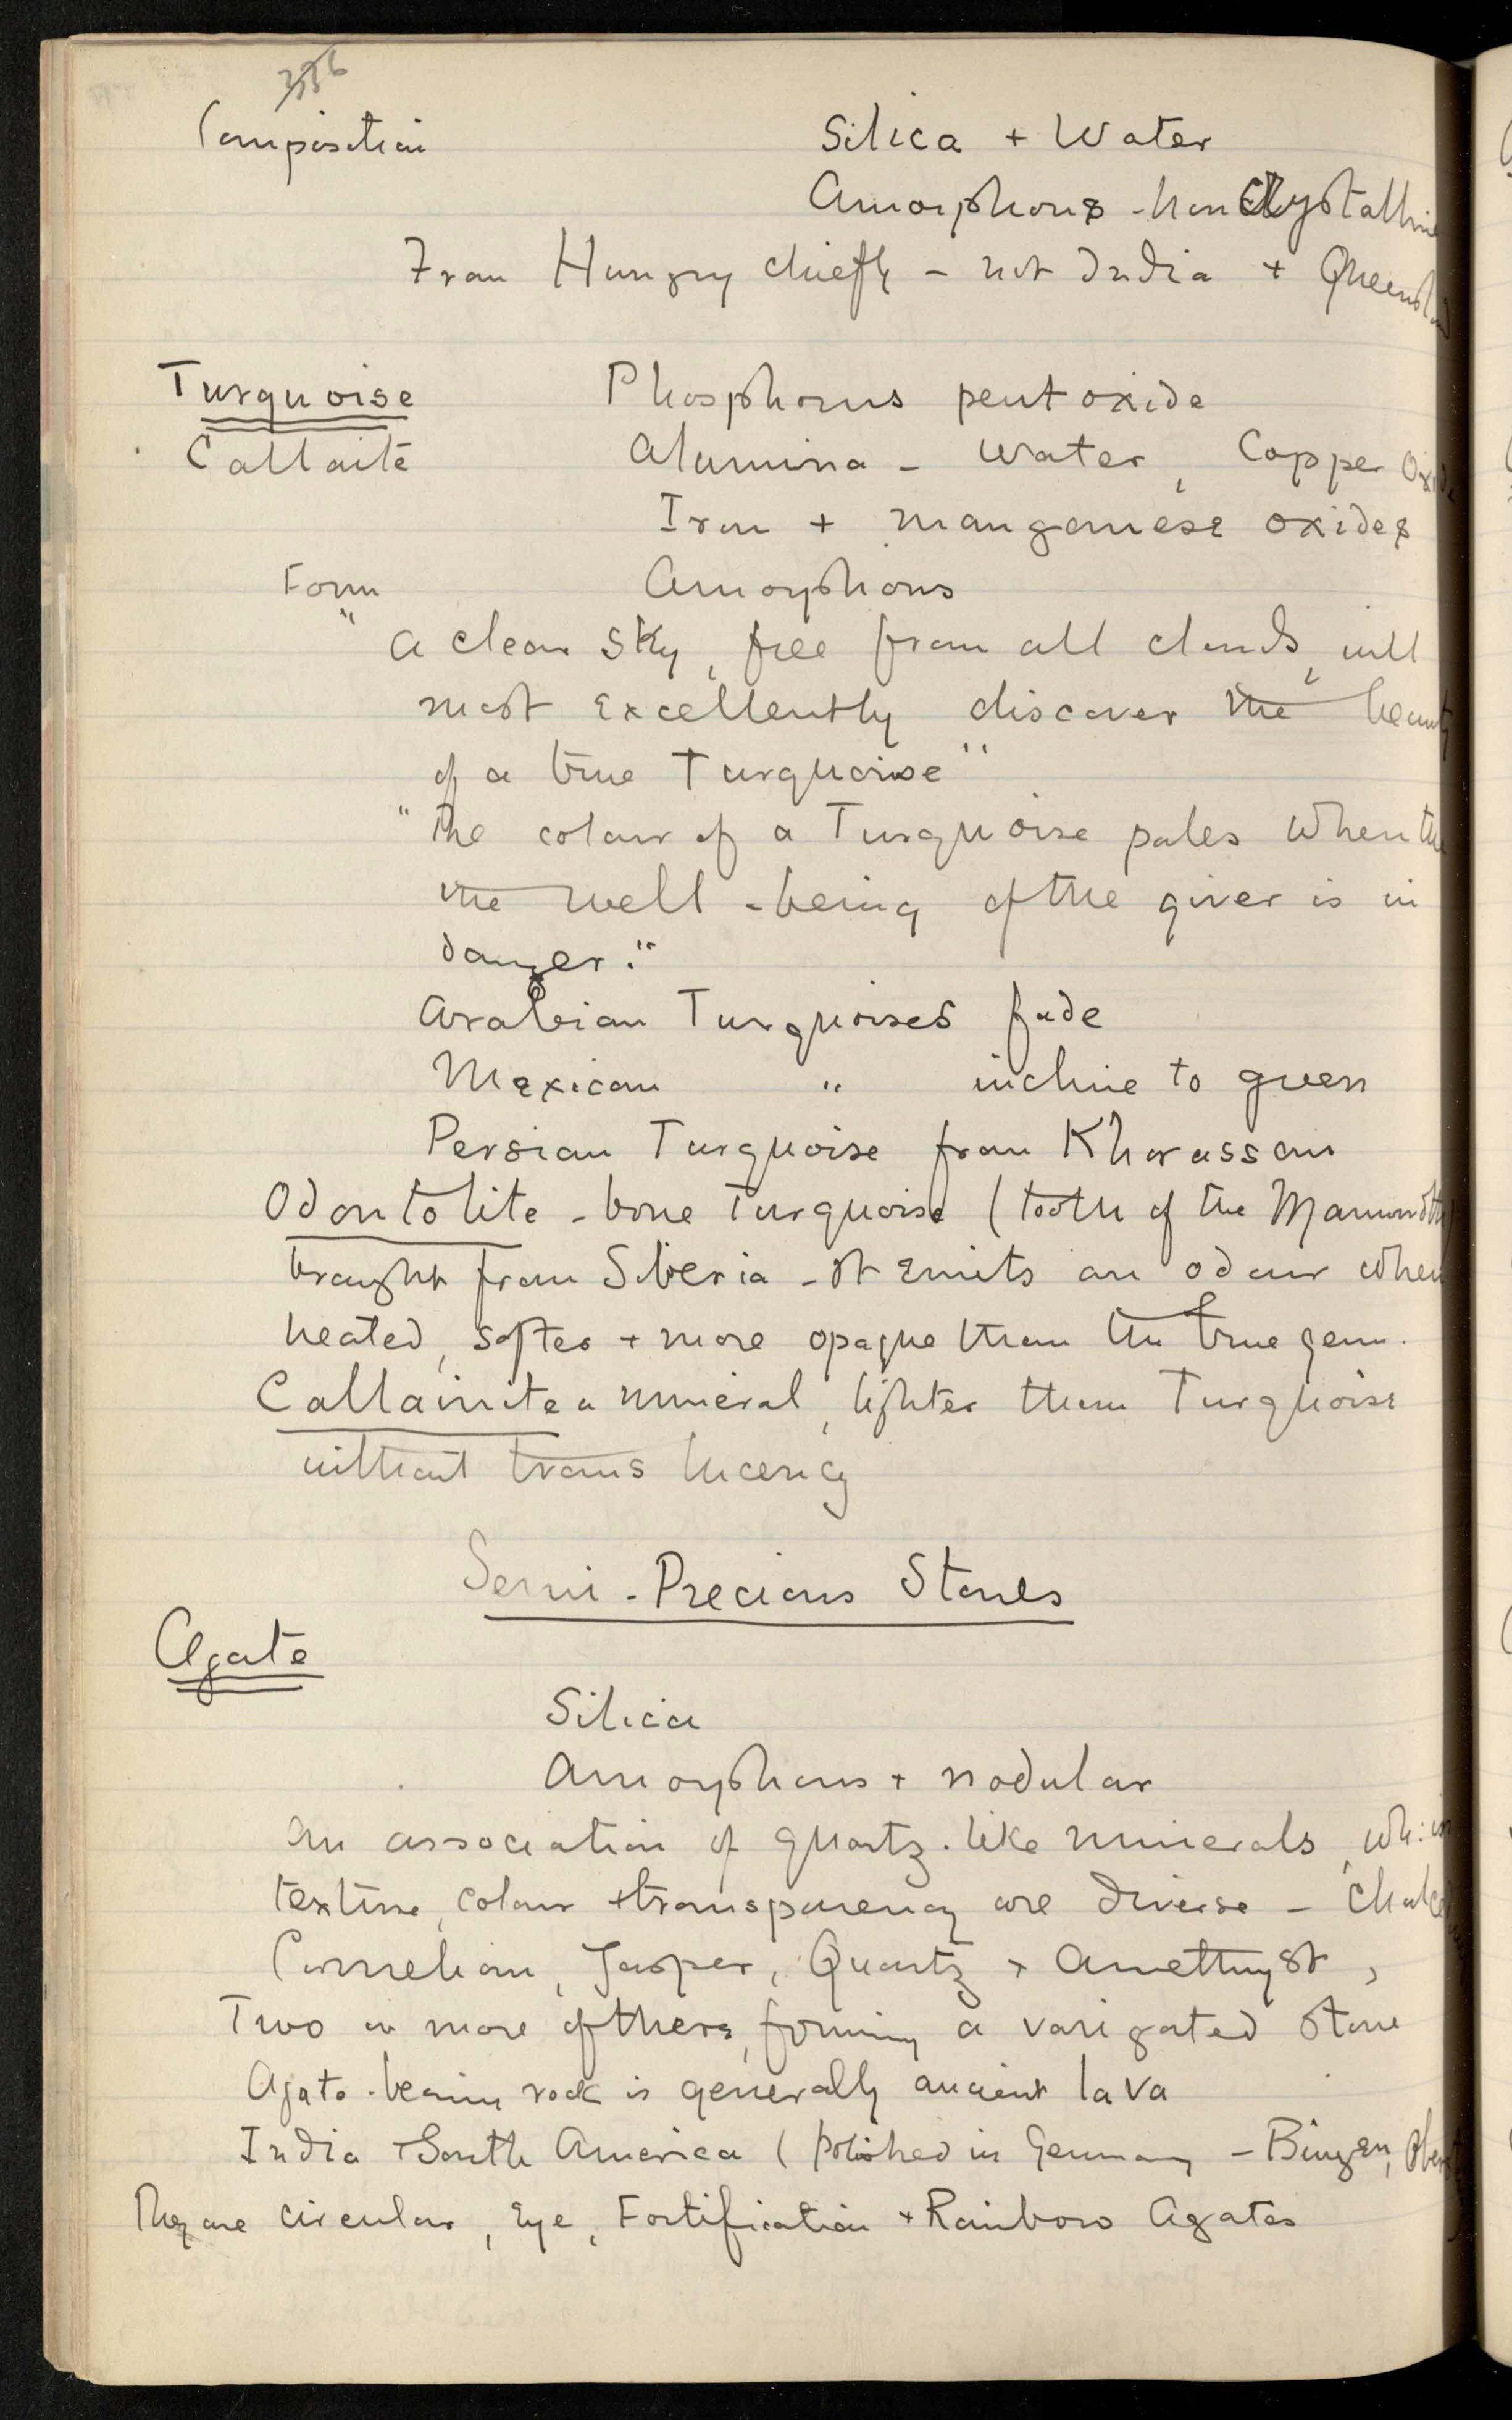 Composition Silica + Water
Amorphous - non Crystalline
From Hungry chiefly - not India + Queensland
Turquoise Phosphorus pentoxide
Callaite Alumina - Water, Copper Oxide
Iron + manganese oxides
Form Amorphous
"A clear sky, free from all clouds, will
most excellently discover the beauty
of a true Turquoise"
"The colour of a Turquoise pales when the
the well-being of the giver is in
danger."
Arabian Turquoises fade
Mexican " incline to green
Persian Turquoise from Khorassan
Odontolite - bone Turquoise (tooth of the Mammoth
brought from Siberia - It emits an odour when
heated, softer + more opaque than the true gem.
Callainite a mineral, lighter than Turquoise
without translucency
Semi-Precious Stones
Agate
Silica
Amorphous + nodular
An association of quartz-like minerals, wh: in
texture, colour + transparency are diverse -
Cornelian, Jasper, Quartz + Amethyst,
Two or more of these, forming a varigated stone
Agate-bearing rock is generally ancient lava
India + South America (polished in Germany - Bingen,
They are circular, Eye, Fortification + Rainbow Agates